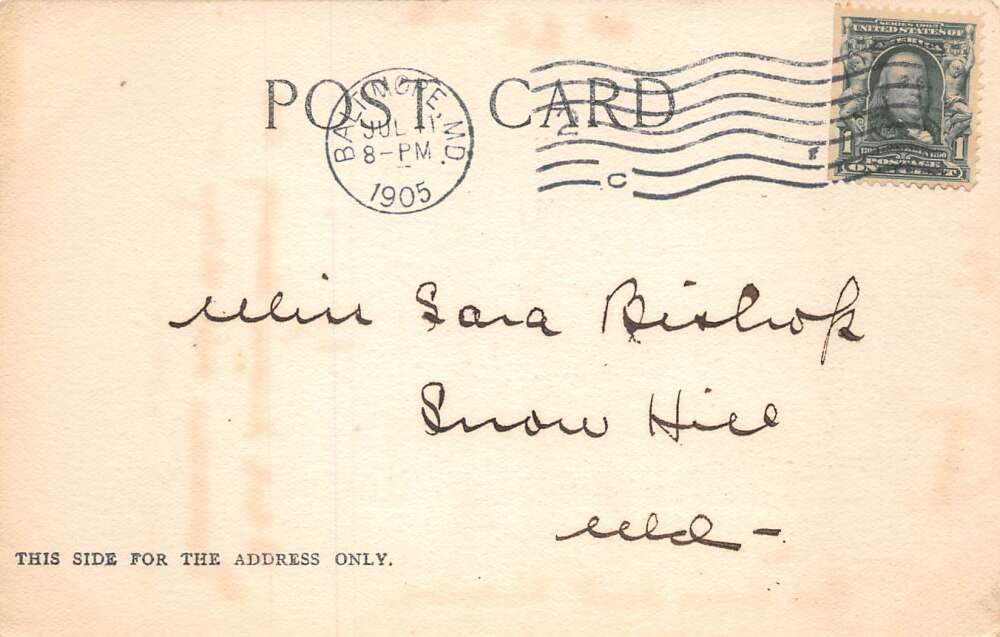 POST CARD
BALTIMORE, MD.
JUL 1
8-PM
1905
2
C
SERIES 1902
UNITED STATES OF
AMERICA
1 1
POSTAGE
ONE CENT
Miss Sara Bishop
Snow Hill
Md -
THIS SIDE FOR THE ADDRESS ONLY.